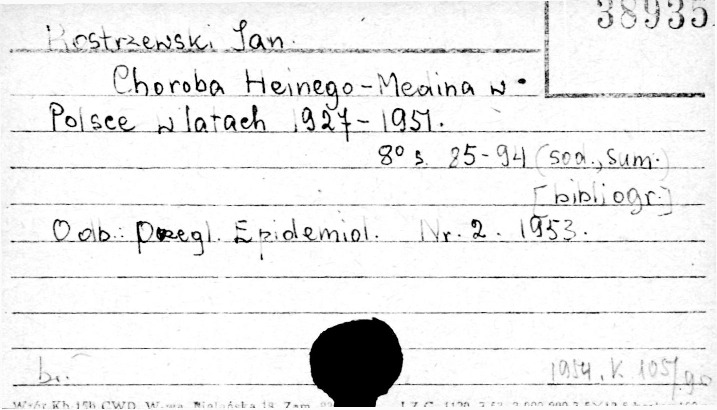 38935
Kostrzewski Jan.
Choroba Heinego-Medina w
Polsce w latach 1927-1951.
8° s. 85-94 (sod., sum.)
[bibliogr.]
Odb.: Przegl. Epidemiol. Nr. 2. 1953.
br. 1954. K 105/90
Wzór Kh 15b CWD, W-wa, Bielańska 18 Zam.